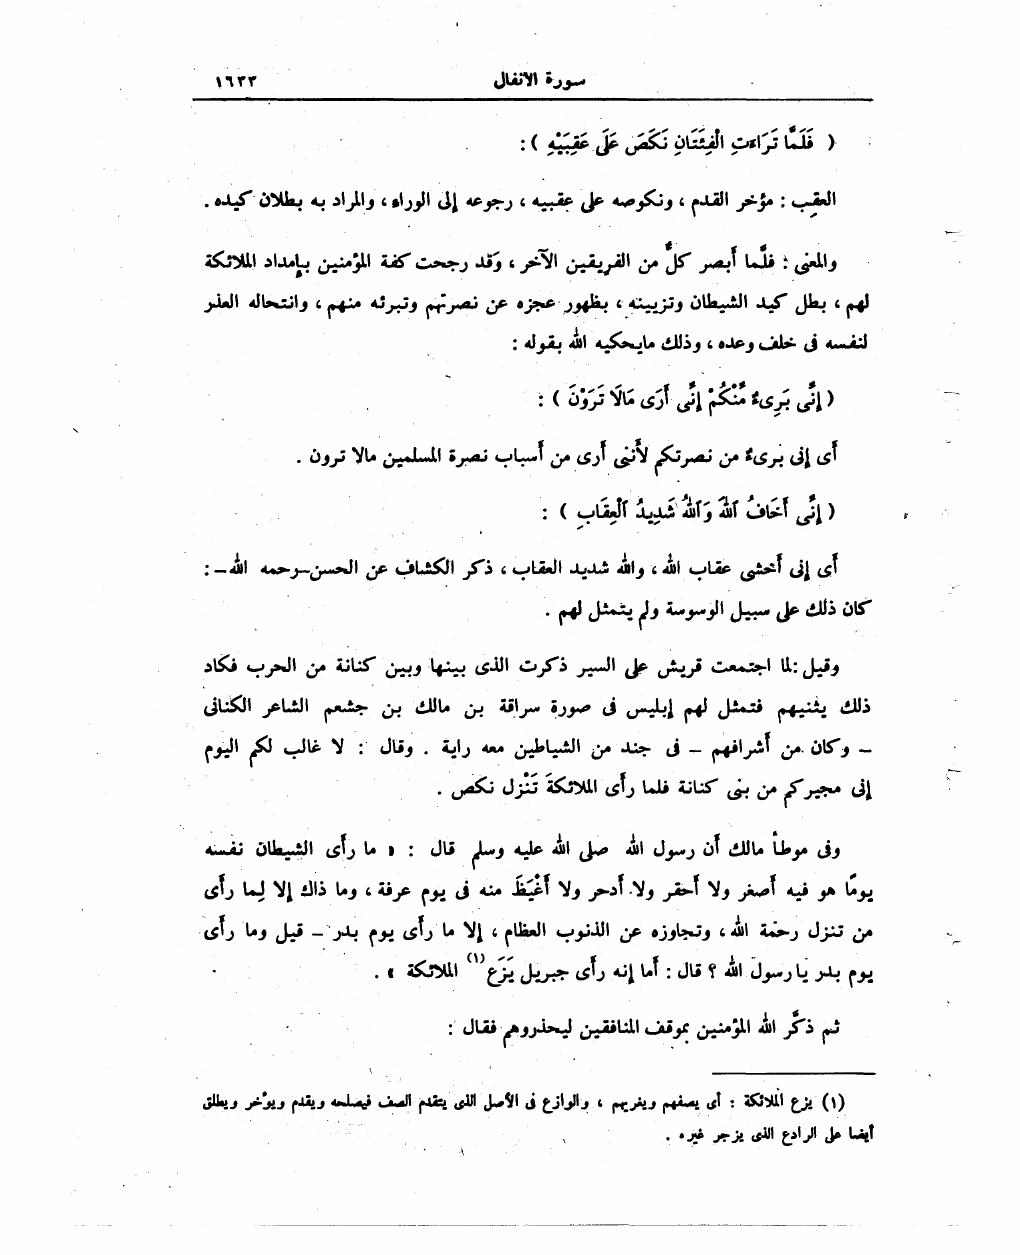 سورة الأنفال ١٦٣٣
( فَلَمَّا تَرَاءَتِ الْفِئَتَانِ نَكَصَ عَلَى عَقِبَيْهِ ) :
العقِب : مؤخر القدم ، ونكوصه على عقبيه ، رجوعه إلى الوراء ، والمراد به بطلان كيده .
والمعنى : فلَّما أَبصر كلٌّ من الفريقين الآخر ، وَقد رجحت كفة المؤمنين بإمداد الملائكة
لهم ، بطل كيد الشيطان وتزيينه ، بظهور عجزه عن نصرتهم وتبرئه منهم ، وانتحاله العذر
لنفسه فى خلف وعده ، وذلك مايحكيه الله بقوله :
( إِنَّى بَرِىءٌ مِّنْكُمْ إِنَّى أَرَى مَالَا تَرَوْنَ ) :
أى إنى برىءٌ من نصرتكم لأَننى أرى من أَسباب نصرة المسلمين مالا ترون .
( إِنَّى أَخَافُ اللهَ وَاللهُ شَدِيدُ الْعِقَابِ ) :
أى إنى أخشى عقاب الله ، والله شديد العقاب ، ذكر الكشاف عن الحسن–رحمه الله– :
كان ذلك على سبيل الوسوسة ولم يتمثل لهم .
وقيل : لما اجتمعت قريش على السير ذكرت الذى بينها وبين كنانة من الحرب فكاد
ذلك يثنيهم فتمثل لهم إبليس فى صورة سراقة بن مالك بن جشعم الشاعر الكنانى
– وكان من أَشرافهم – فى جند من الشياطين معه راية . وقال : لا غالب لكم اليوم
إنى مجيركم من بنى كنانة فلما رأى الملائكةَ تَنْزل نكص .
وفى موطأ مالك أن رسول الله صلى الله عليه وسلم قال : « ما رأى الشيطان نفسه
يومًا هو فيه أَصغر ولا أَحقر ولا أَدحر ولا أَغْيَظَ منه فى يوم عرفة ، وما ذاك إلا لِما رأى
من تنزل رحمة الله ، وتجاوزه عن الذنوب العظام ، إلا ما رأى يوم بدر – قيل وما رأى
يوم بدر يا رسول الله ؟ قال : أما إنه رأى جبريل يَزَع(١) الملائكة » .
ثم ذكَّر الله المؤمنين بموقف المنافقين ليحذروهم فقال :
(١) يزع الملائكة : أى يصفهم ويفريهم ، والوازع فى الأصل الذى يتقدم الصف فيصلحه ويقدم ويؤخر ويطلق
أيضا على الرادع الذى يزجر غيره .